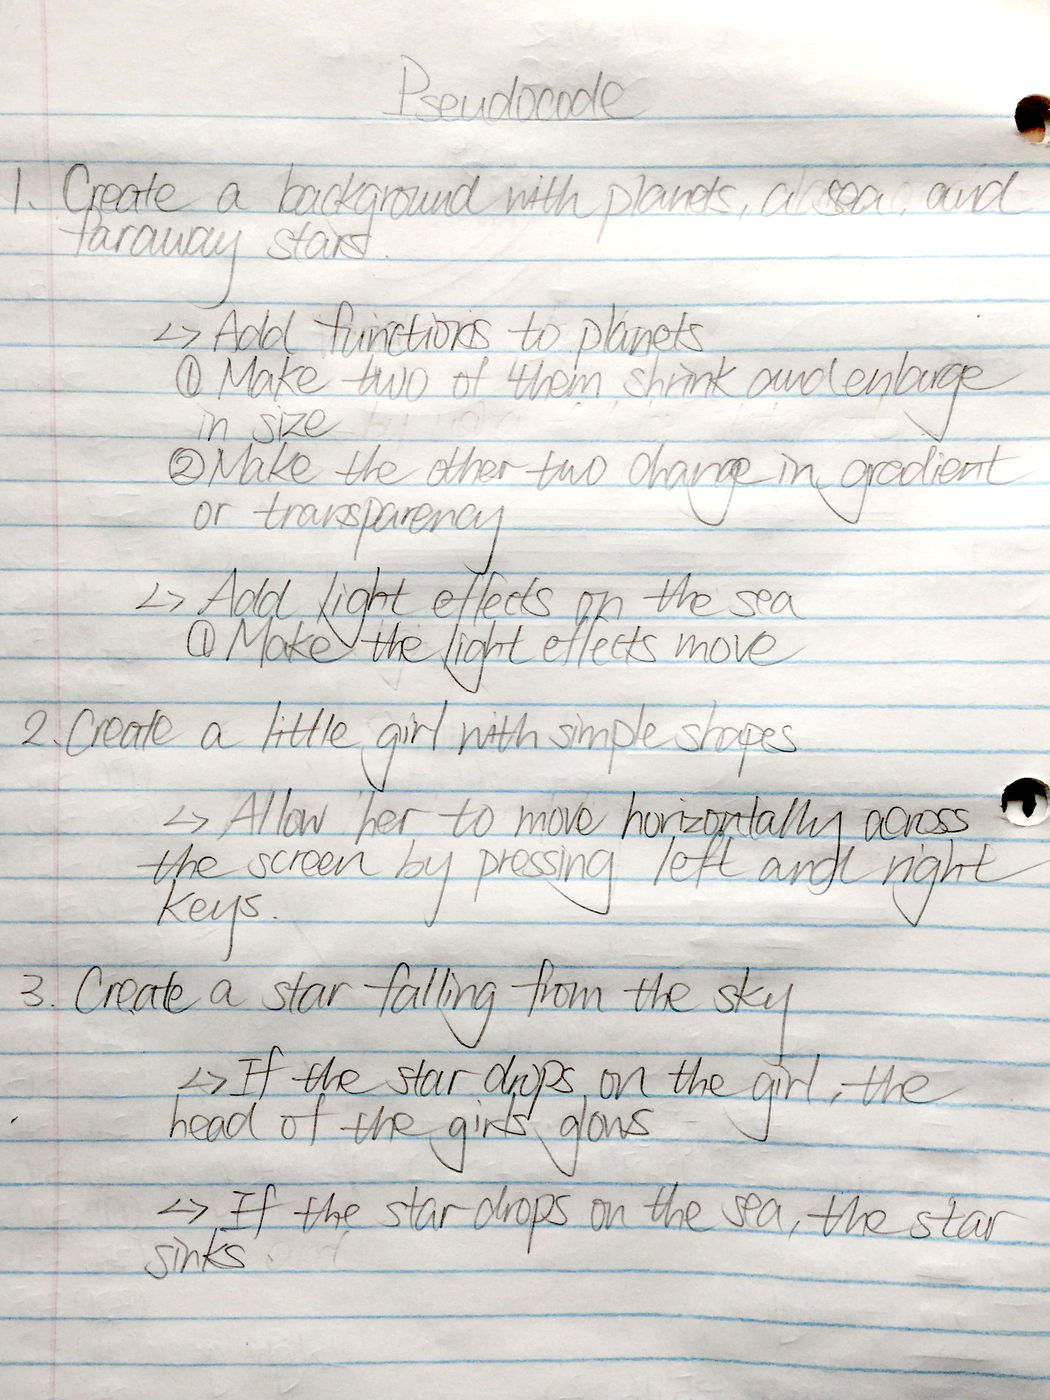 Pseudocode
1. Create a background with planets, a sea, and
faraway stars.
↳ Add functions to planets
① Make two of them shrink and enlarge
in size
② Make the other two change in gradient
or transparency
↳ Add light effects on the sea
① Make the light effects move
2. Create a little girl with simple shapes
↳ Allow her to move horizontally across
the screen by pressing left and right
keys.
3. Create a star falling from the sky
↳ If the star drops on the girl, the
head of the girls glows
↳ If the star drops on the sea, the star
sinks.